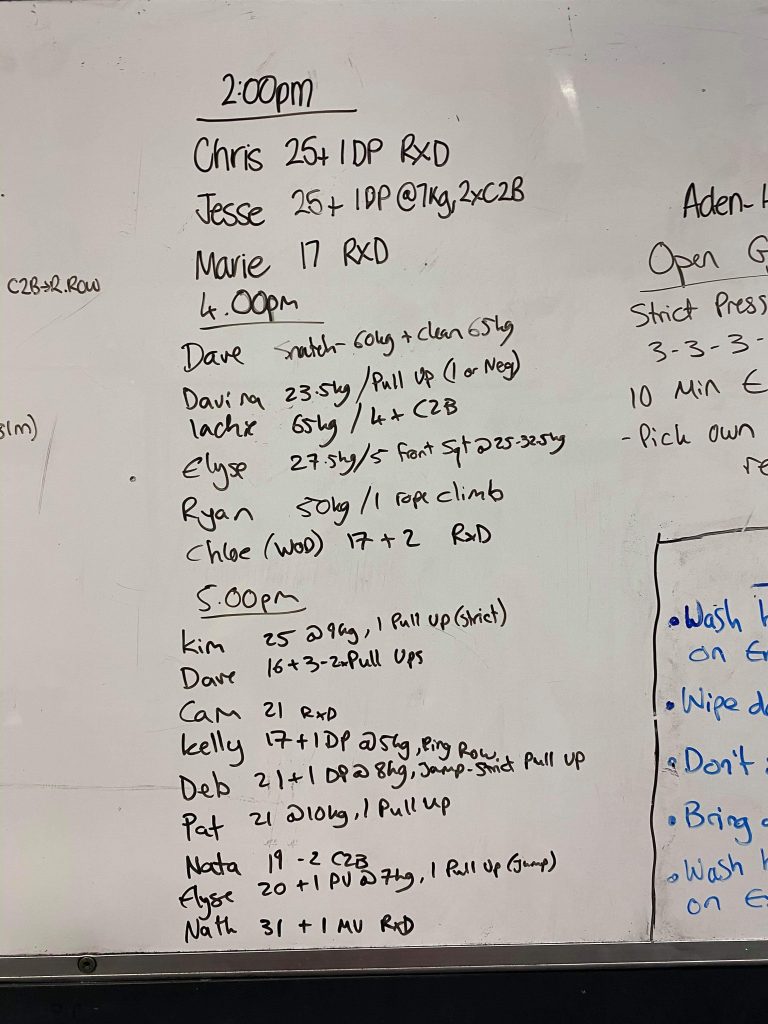 2:00pm
Chris 25+ 1DP RXD
Jesse 25+ 1DP @7Kg, 2xC2B
Marie 17 RXD
4.00pm
Dave Snatch- 60kg + clean 65kg
Davina 23.5kg /Pull Up (1 or Neg)
lachie 65kg / 4x C2B
Elyse 27.5kg/5 Front Sqt @25-32.5kg
Ryan 50kg /1 rope climb
Chloe (WOD) 17 + 2 RxD
5.00pm
Kim 25 @9kg, 1 Pull Up (Strict)
Dave 16+3-2xPull Ups
Cam 21 RxD
Kelly 17+1DP @5kg, Ring Row
Deb 21+1 DP@8kg, Jump-Strict Pull Up
Pat 21 @10kg, 1 Pull Up
Nata 19 -2 C2B
Elyse 20 +1 PU @7kg, 1 Pull Up (Jump)
Nath 31 + 1 MU RxD
C2B→R.Row
Aden-
Open G
Strict Press
3-3-3-
10 Min E
- Pick own
re
• Wash
on En
• Wipe do
• Don't
• Bring
• Wash
on E